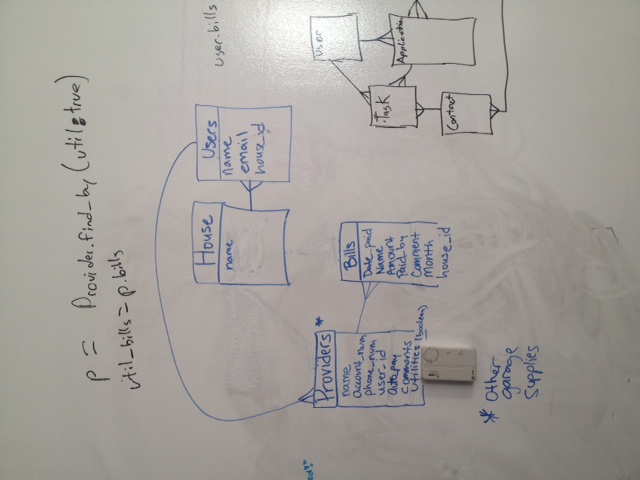 p = Provider.find_by(util:true)
util_bills = p.bills
House
name
Users
name
email
house_id
user.bills
Providers *
name
account_num
phone_num
user_id
auto_pay
comments
utilities (boolean)
Bills
Date_paid
Name
Amount
Paid_by
Comment
Month
house_id
* Other
garage
supplies
User
Task
Application
Contact